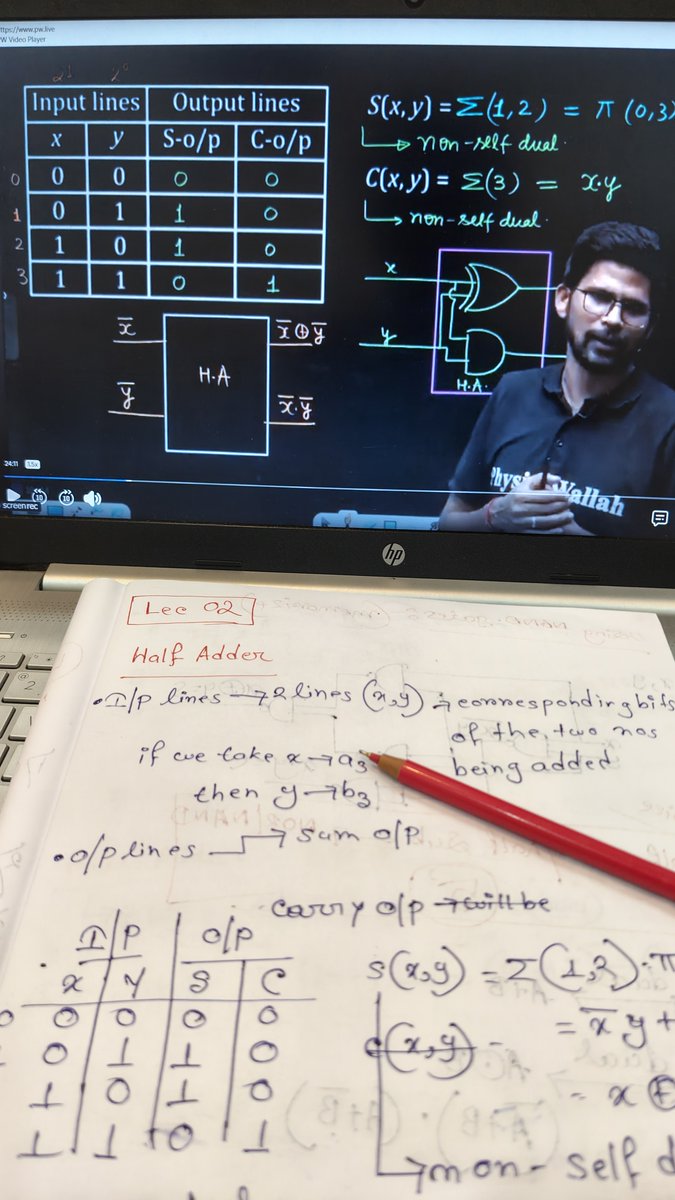 https://www.pw.live
PW Video Player
2¹ 2⁰
Input lines Output lines
x y S-o/p C-o/p
0 0 0 0 0
1 0 1 1 0
2 1 0 1 0
3 1 1 0 1
S(x,y) = Σ(1,2) = π(0,3)
non-self dual.
C(x,y) = Σ(3) = x·y
non-self dual.
x
y
H.A.
x̅ x̅⊕y̅
H.A
y̅ x̅·y̅
Physics Wallah
24:11 1.5x
10 10
screenrec
hp
2
Lec 02
Half Adder
• I/P lines → 2 lines (x,y) ÷ corresponding bits
of the two nos
being added
if we take x → a₃
then y → b₃
• O/p lines → sum O/P
carry o/p → will be
I/P O/P
x y S C
0 0 0 0 0
0 1 1 0
1 0 1 0
1 1 0 1
S(x,y) = Σ(1,2)·π
= x̅y +
C(x,y) =
= x ⊕
→ non-self d